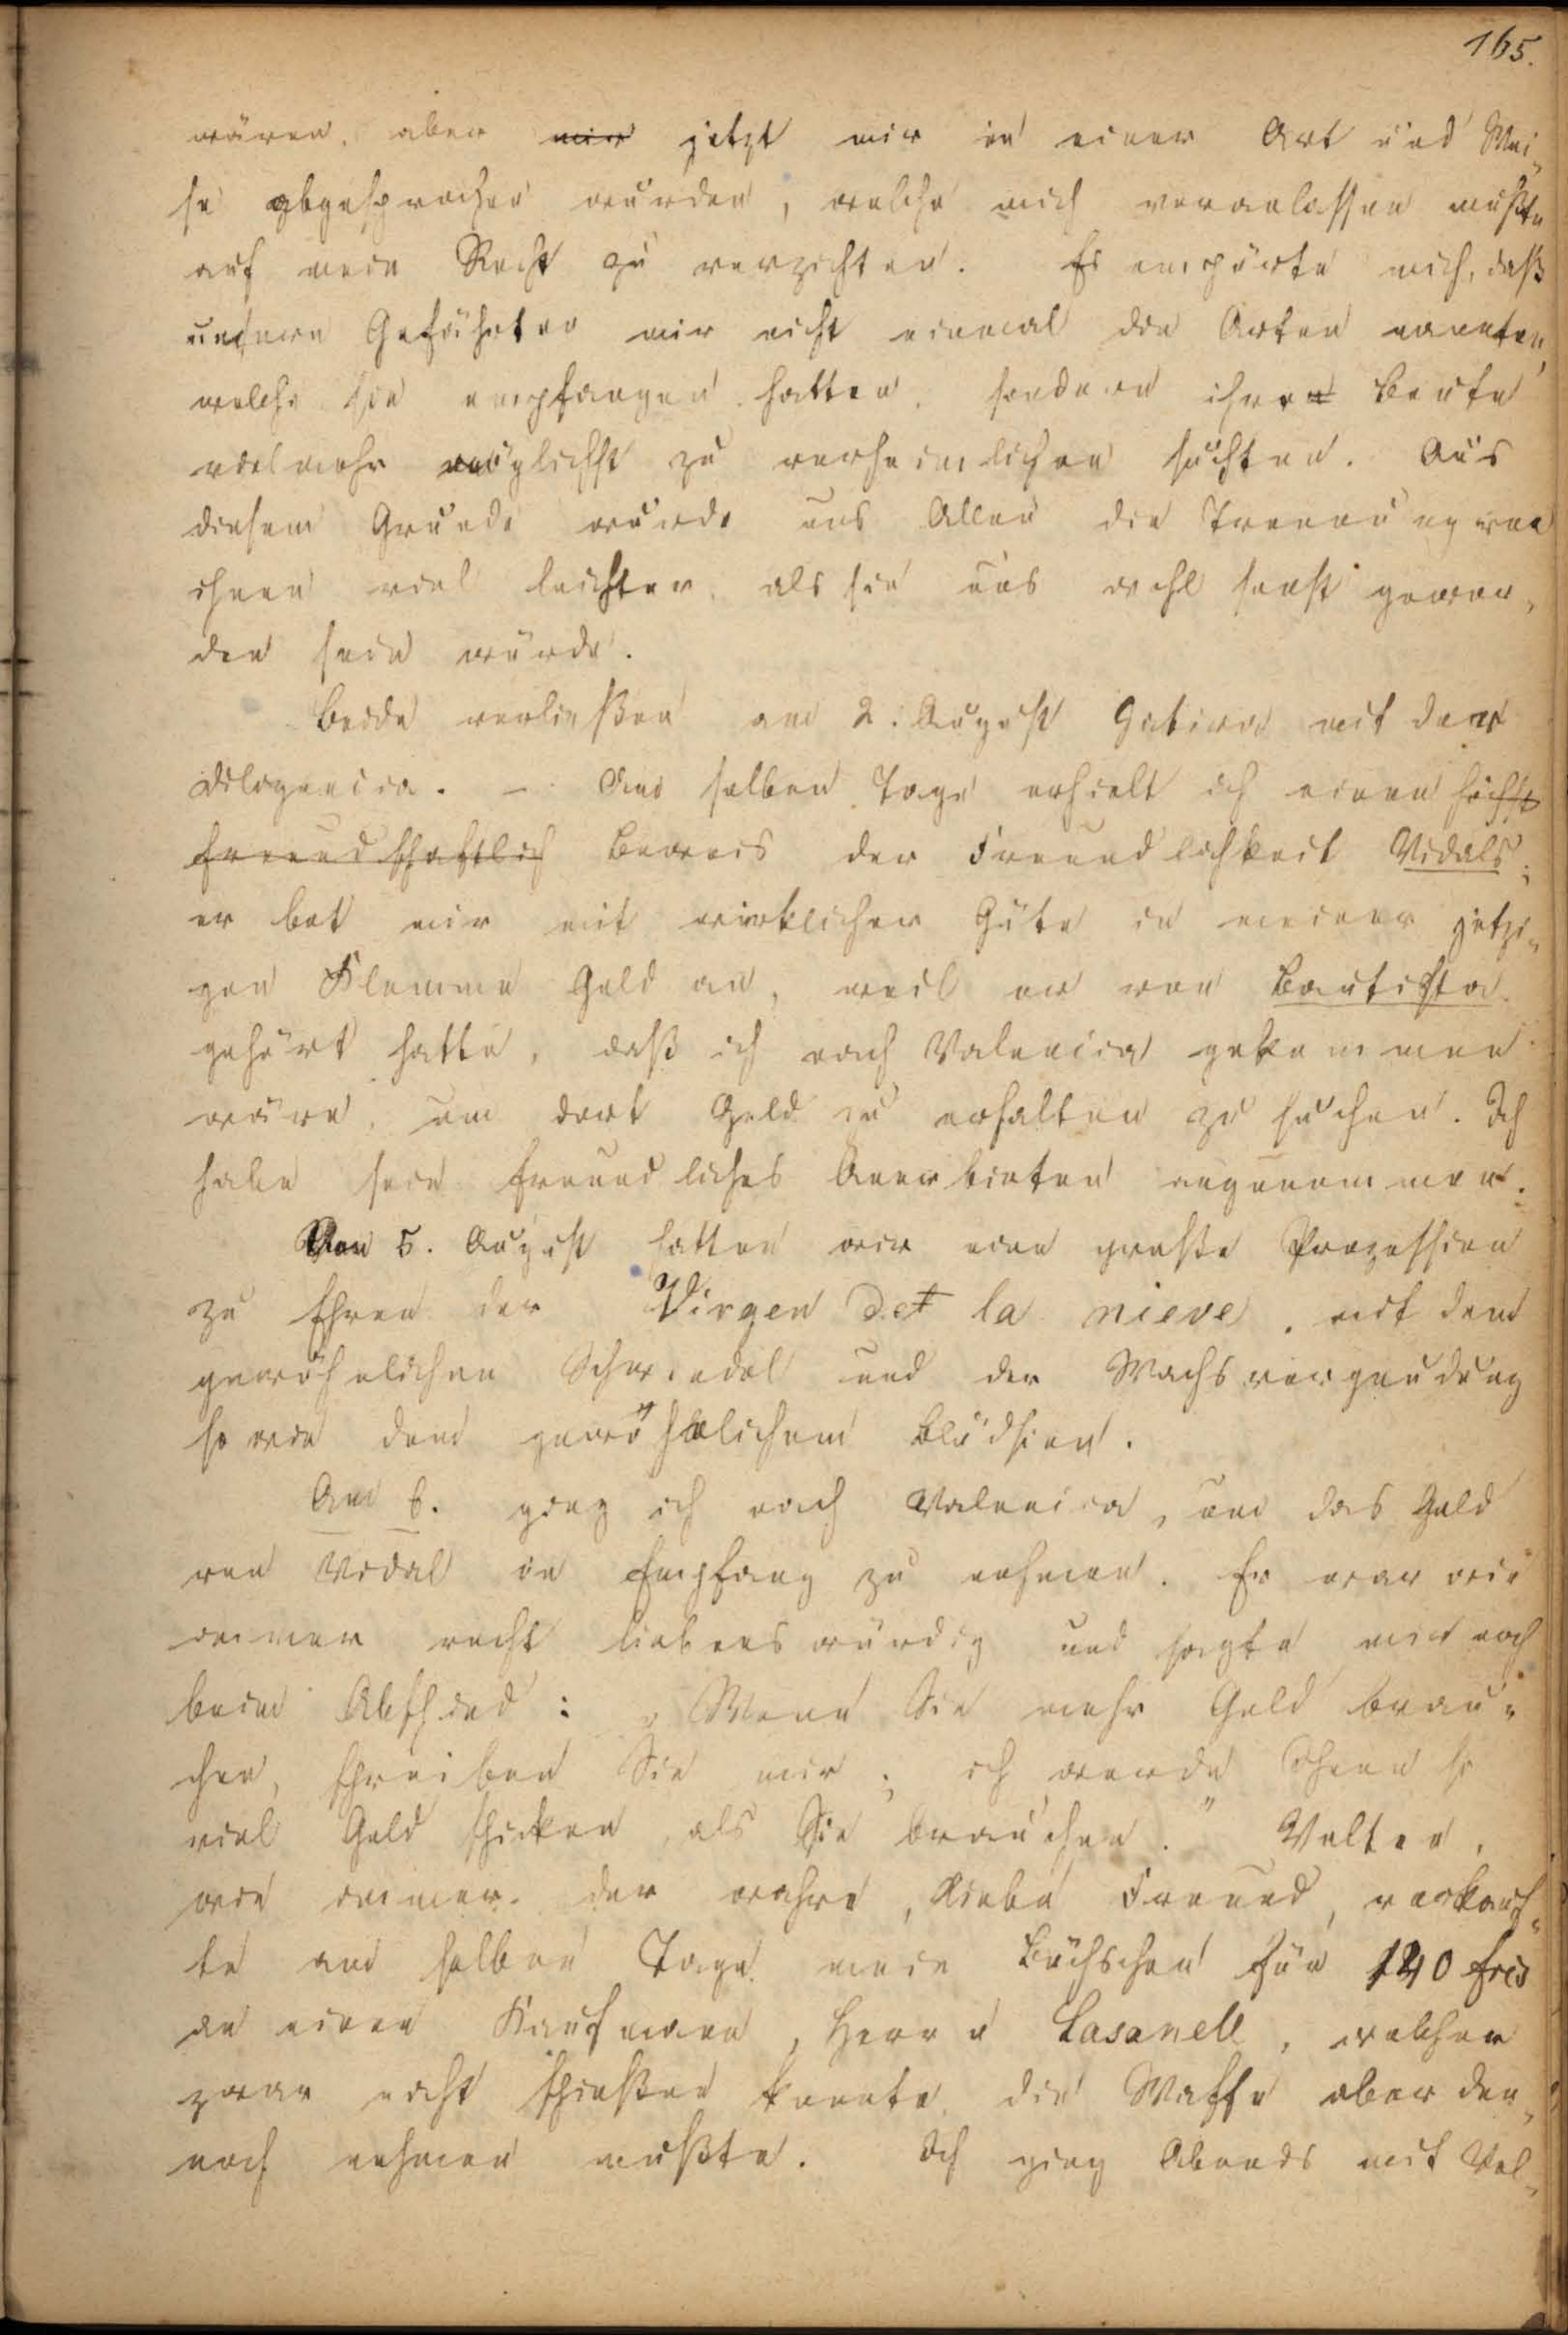 165.
wären, aber mir jetzt mir in einer Art und Wei-
se abgesprochen wurden, welche mich veranlassen mußte
auf mein Recht zu verzichten. Es empörte mich, daß
unsere Gefährten mir nicht einmal die Arten nannten,
welche sie empfangen hatten, sondern ihre Beute
vielmehr möglichst zu verheimlichen suchten. Aus
diesem Grunde wurde uns Allen die Trennung von
ihnen viel leichter, als sie uns wohl sonst gewor-
den sein würde.
Beide verließen am 2. August mit der
Diligencia. – Am selben Tage erhielt ich einen höchst
freundschaftlich Beweis der Freundlichkeit Vidals;
er bot mir mit wirklicher Güte in meiner jetzi-
gen Klemme Geld an, weil er von Bautista
gehört hatte, daß ich nach Valencia gekommen
wäre, um dort Geld zu erhalten zu suchen. Ich
habe sein freundliches Anerbieten angenommen.
Am 5. August hatten wir eine große Prozession
zu Ehren der Virgen de la nieve, mit dem
gewöhnlichen Schwindel und der Wachsvergeudung
so wie dem gewöhnlichem Blödsinn.
Am 6. ging ich nach Valencia, um das Geld
von Vidal in Empfang zu nehmen. Er war wie
immer recht liebenswürdig und sagte mir noch
beim Abschied: „Wenn Sie mehr Geld brau-
chen, schreiben Sie mir; ich werde Ihnen so
viel Geld schicken, als Sie brauchen." Valter,
wie immer der wahre, liebe Freund, verkauf-
te am selben Tage mein Büchschen für 140 frcs
an einen Kaufmann, Herrn Casanell, welcher
zwar nicht schießen konnte, die Waffe aber den-
noch nehmen mußte. Ich ging Abends mit Val-